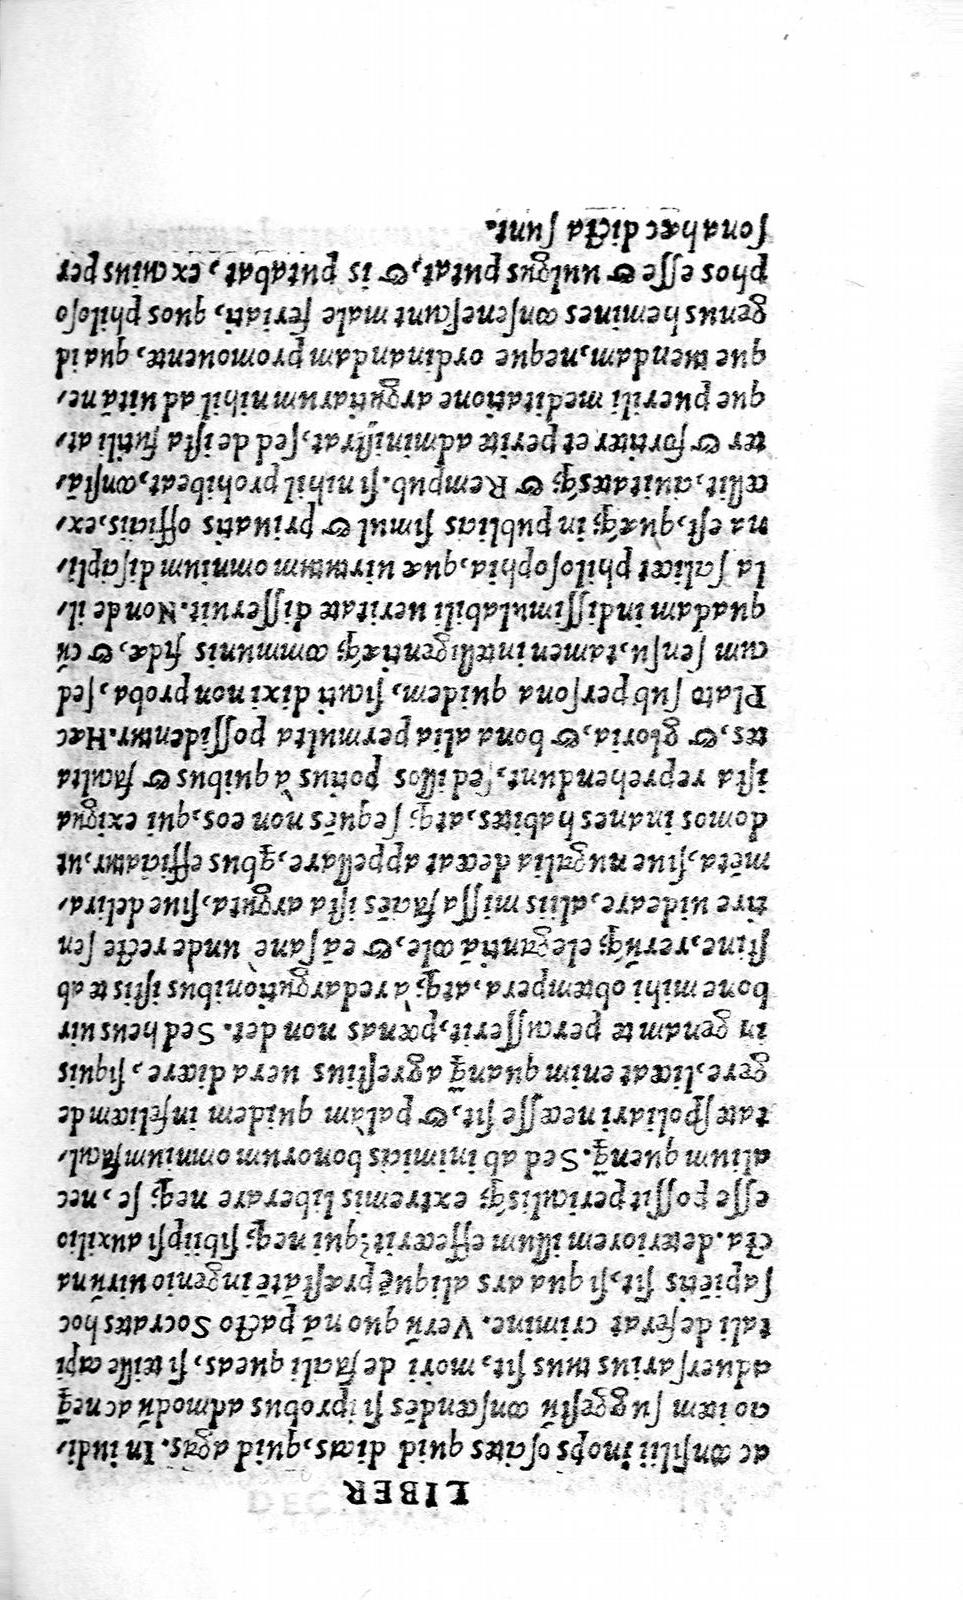 LIBER
ac cõsilii inops oscites quid dicas, quid agas. In iudi,
cio item suggestũ cõscendẽs si iprobus admodũ ac neq̃
aduersarius tuus sit, mori de facili queas, si te ille capi
tali deferat crimine. Verũ quo nã pacto Socrates hoc
sapiẽtis sit, si qua ars aliquẽ præstãtẽ ingenio uirũ na
cta. deteriorem illum effecerit? qui neq; sibiipsi auxilio
esse possit periculisq́; extremis liberare neq; se, nec
alium quenq̃. Sed ab inimicis bonorum omnium facul,
tate spoliari necesse sit, & palàm quidem infelicem de
gere, licæat enim quanq̃ agrestius uera dicere, siquis
in genam te percusserit, pœnas non det. Sed heus uir
bone mihi obtempera, atq; à redargutionibus istis te ab
stine, rerũq́; elegantiã cole, & eã sanè unde recte sen
tire uideare, aliis missa faciẽs ista arguta, siue delira,
mẽta, siue nugalia deceat appellare, q̃bus efficiatur, ut
domos inanes habites, atq; sequẽs non eos, qui exigua
ista reprehendunt, sed illos potius à quibus & faculta
tes, & gloria, & bona alia permulta possidentur. Hæc
Plato sub persona quidem, sicuti dixi non proba, sed
cum sensu, tamen intelligentiæq́; communis fide, & cũ
quadam indissimulabili ueritate disseruit. Non de il,
la scilicet philosophia, quæ uirtutum omnium discipli,
na est, quæq́; in publicis simul & priuatis officiis, ex,
cellit, ciuitatesq́; & Rempub. si nihil prohibeat, constã,
ter & fortiter et perite administrat, sed de ista futili at,
que puerili meditatione argutiarum nihil ad uitã ne,
que tuendam, neque ordinandam promouente, qua id
genus homines consenescunt male feriati, quos philoso
phos esse & uulgus putat, & is putabat, ex cuius per
sona hæc dicta sunt.